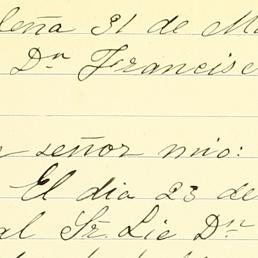 leña 31 de Ma
Dn Francisc
señor mio:
El dia 23 de
al Sr. Lic Dn